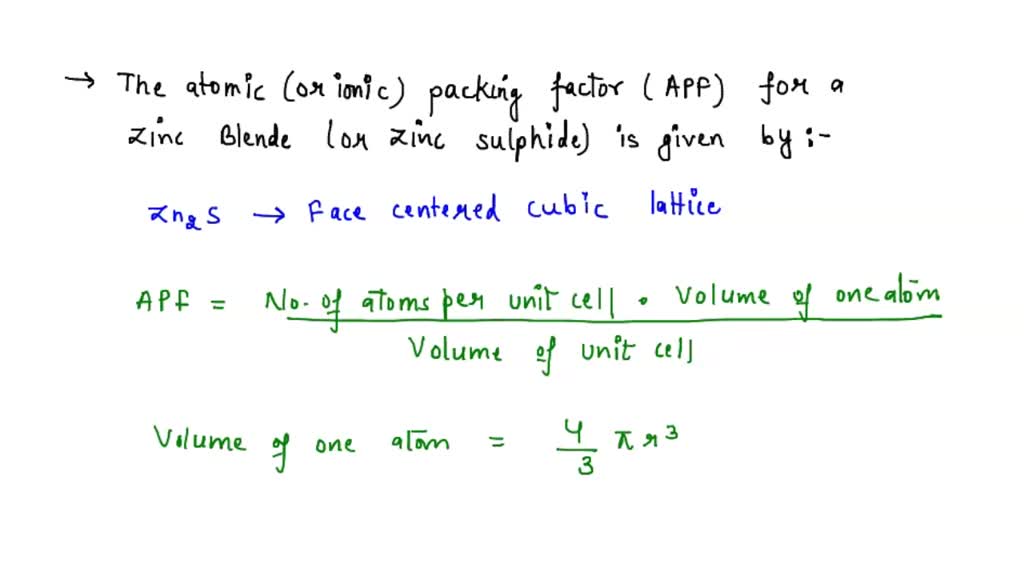 → The atomic (or ionic) packing factor (APF) for a
Zinc Blende (or zinc sulphide) is given by :-
Zn₂S → Face centered cubic lattice
APF = No. of atoms per unit cell . Volume of one atom
Volume of unit cell
Volume of one atom = 4/3 π r³